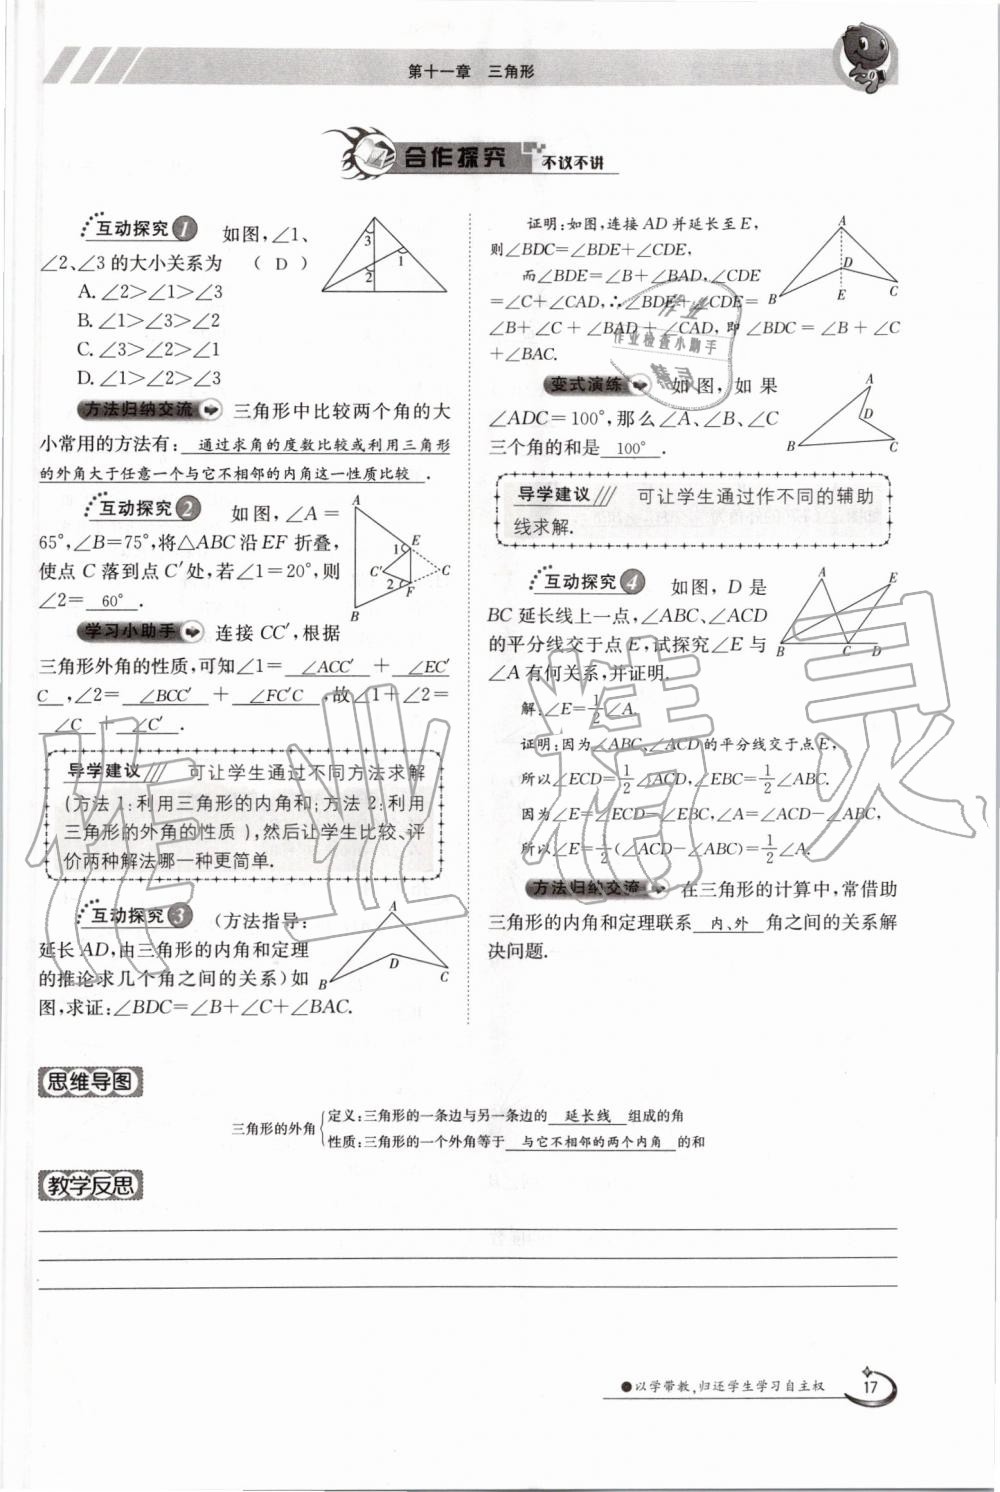 第十一章 三角形
合作探究 不议不讲
互动探究1 如图,∠1、
∠2、∠3的大小关系为 ( D )
A.∠2>∠1>∠3
B.∠1>∠3>∠2
C.∠3>∠2>∠1
D.∠1>∠2>∠3
3
1
2
方法归纳交流 三角形中比较两个角的大
小常用的方法有: 通过求角的度数比较或利用三角形
的外角大于任意一个与它不相邻的内角这一性质比较 .
互动探究2 如图,∠A=
65°,∠B=75°,将△ABC沿EF折叠,
使点C落到点C′处,若∠1=20°,则
∠2= 60° .
A
1
E
C′
C
2
F
B
学习小助手 连接CC′,根据
三角形外角的性质,可知∠1= ∠ACC′ + ∠EC′
C ,∠2= ∠BCC′ + ∠FC′C ,故∠1+∠2=
∠C + ∠C′ .
导学建议 可让学生通过不同方法求解
(方法1:利用三角形的内角和;方法2:利用
三角形的外角的性质),然后让学生比较、评
价两种解法哪一种更简单.
互动探究3 (方法指导:
延长AD,由三角形的内角和定理
的推论求几个角之间的关系)如
图,求证:∠BDC=∠B+∠C+∠BAC.
A
D
B
C
证明:如图,连接AD并延长至E,
则∠BDC=∠BDE+∠CDE,
而∠BDE=∠B+∠BAD,∠CDE
=∠C+∠CAD,∴∠BDE+∠CDE=
∠B+∠C+∠BAD+∠CAD,即∠BDC=∠B+∠C
+∠BAC.
A
D
B
E
C
作业
作业检查小助手
精灵
变式演练 如图,如果
∠ADC=100°,那么∠A、∠B、∠C
三个角的和是 100° .
A
D
B
C
导学建议 可让学生通过作不同的辅助
线求解.
互动探究4 如图,D是
BC延长线上一点,∠ABC、∠ACD
的平分线交于点E,试探究∠E与
∠A有何关系,并证明.
A
E
B
C
D
解:∠E=1/2∠A.
证明:因为∠ABC、∠ACD的平分线交于点E,
所以∠ECD=1/2∠ACD,∠EBC=1/2∠ABC.
因为∠E=∠ECD-∠EBC,∠A=∠ACD-∠ABC,
所以∠E=1/2(∠ACD-∠ABC)=1/2∠A.
方法归纳交流 在三角形的计算中,常借助
三角形的内角和定理联系 内、外 角之间的关系解
决问题.
思维导图
三角形的外角
定义:三角形的一条边与另一条边的 延长线 组成的角
性质:三角形的一个外角等于 与它不相邻的两个内角 的和
教学反思
●以学带教,归还学生学习自主权
17
作业精灵